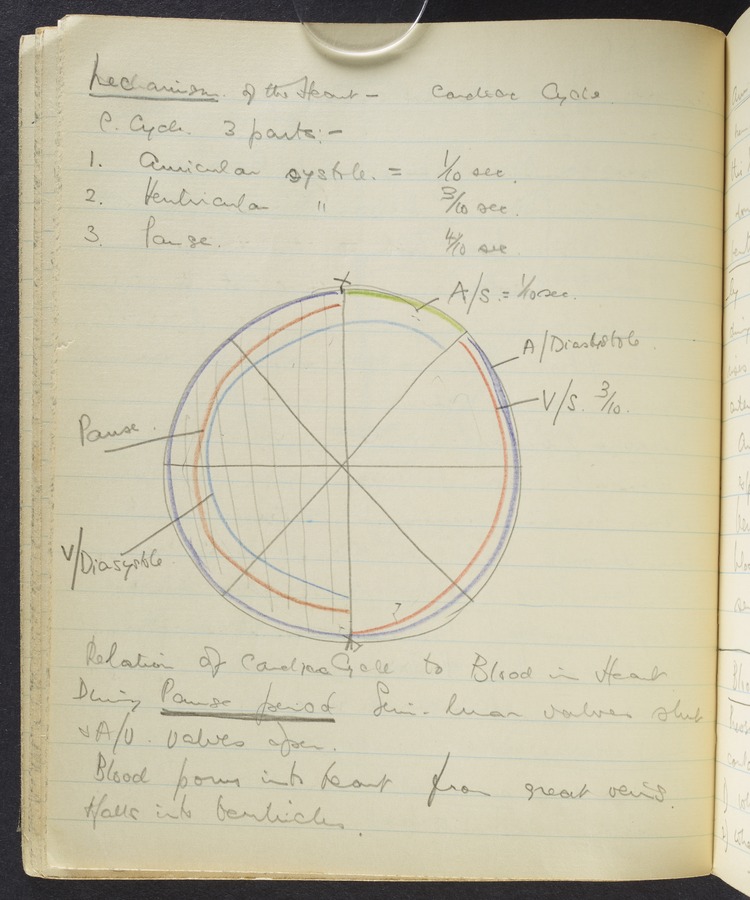 Mechanism of the Heart - Cardiac Cycle.
C. Cycle. 3 parts:-
1. Auricular systole. = 1/10 sec.
2. Ventricular " 3/10 sec.
3. Pause. 4/10 sec.
X
A/S. = 1/10 sec.
A/Diastole
V/S. 3/10.
Pause.
V/Diasystole
Relation of Cardiac Cycle to Blood in Heart
During Pause period Semi-lunar valves shut
& A/V. valves open.
Blood pours into heart from great veins.
Falls into Ventricles.